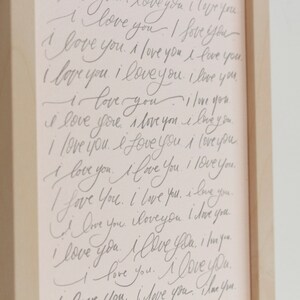 i love you i love you
i love you. i love you. I love you
i love you i love you i love you
I love you i love you i love you
i love you. i love you
I love you. i love you i love you
I love you I love you i love you
i love you. i love you i love you
I love you. I love You I love you
I love you. I love you. i love you
i love you i love you i love you
I love you. I love you. i love you.
i love you. i love you.
i love you. i love you. i love you